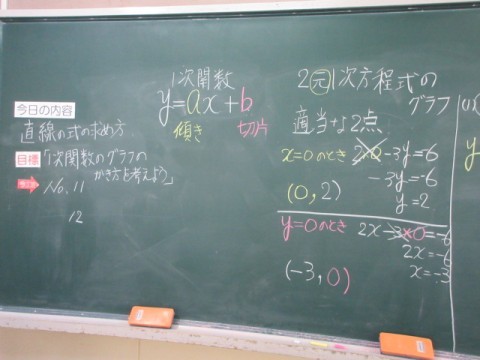 今日の内容
直線の式の求め方
目標 「1次関数のグラフの
かき方を考えよう」
No. 11
12
1次関数
y=ax+b
傾き 切片
2元1次方程式の
グラフ
適当な2点
x=0のとき 2×0-3y=6
-3y=-6
(0, 2) y=2
y=0のとき 2x-3×0=-6
2x=-6
(-3, 0) x=-3
y